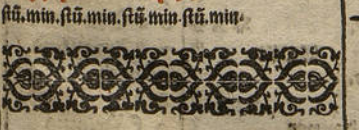 ſtū. min. ſtū. min. ſtū. min. ſtū. min.